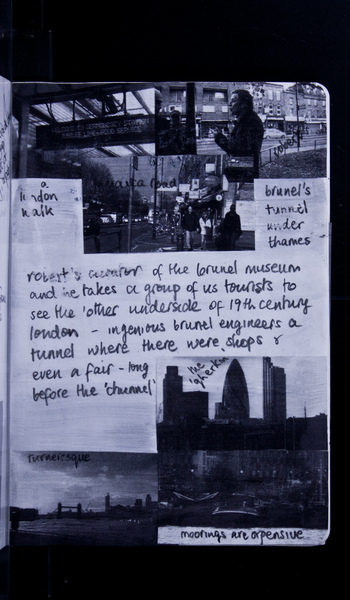 a
london
walk
brunel's
tunnel
under
thames
robert's curator of the brunel museum
and he takes a group of us tourists to
see the 'other underside of 19th century
london - ingenious brunel engineers a
tunnel where there were shops &
even a fair - long
before the 'chunnel'
the
'gherkin'
turneresque
moorings are expensive